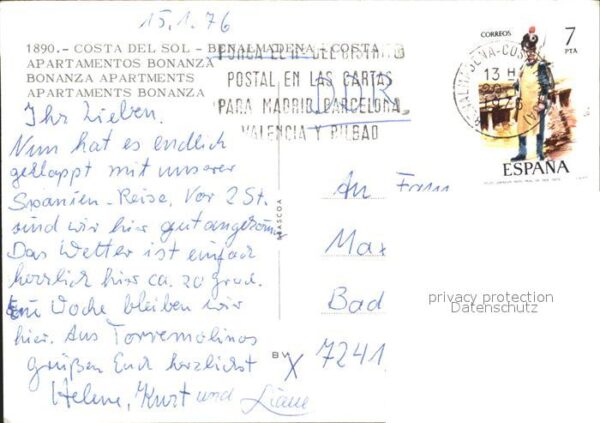 15.1.76
1890.- COSTA DEL SOL - BENALMADENA - COSTA
APARTAMENTOS BONANZA
BONANZA APARTMENTS
APARTMENTS BONANZA
PONGA EL Nº DEL DISTRITO
POSTAL EN LAS CARTAS
PARA MADRID, BARCELONA,
VALENCIA Y BILBAO
CORREOS
7
PTA
13 H
ESPAÑA
Ihr Lieben.
Nun hat es endlich
geklappt mit unserer
Spanien-Reise, Vor 2 St.
sind wir hier gut angekomm.
Das Wetter ist einfach
herrlich hier ca. 20 Grad.
Ein Woche bleiben wir
hier. Aus Torremolinos
grüßen Euch herzlichst
Helene, Kurt und Liane
BRASCOA
BV
An Fram
Max
Bad
X 7241
privacy protection
Datenschutz